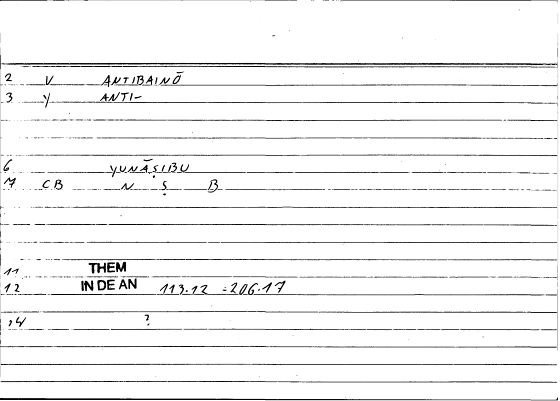 2 V ANTIBAINŌ
3 Y ANTI-
6 YUNĀṢIBU
7 CB N Ṣ B
11 THEM
12 IN DE AN 113.12 = 206.17
14 ?